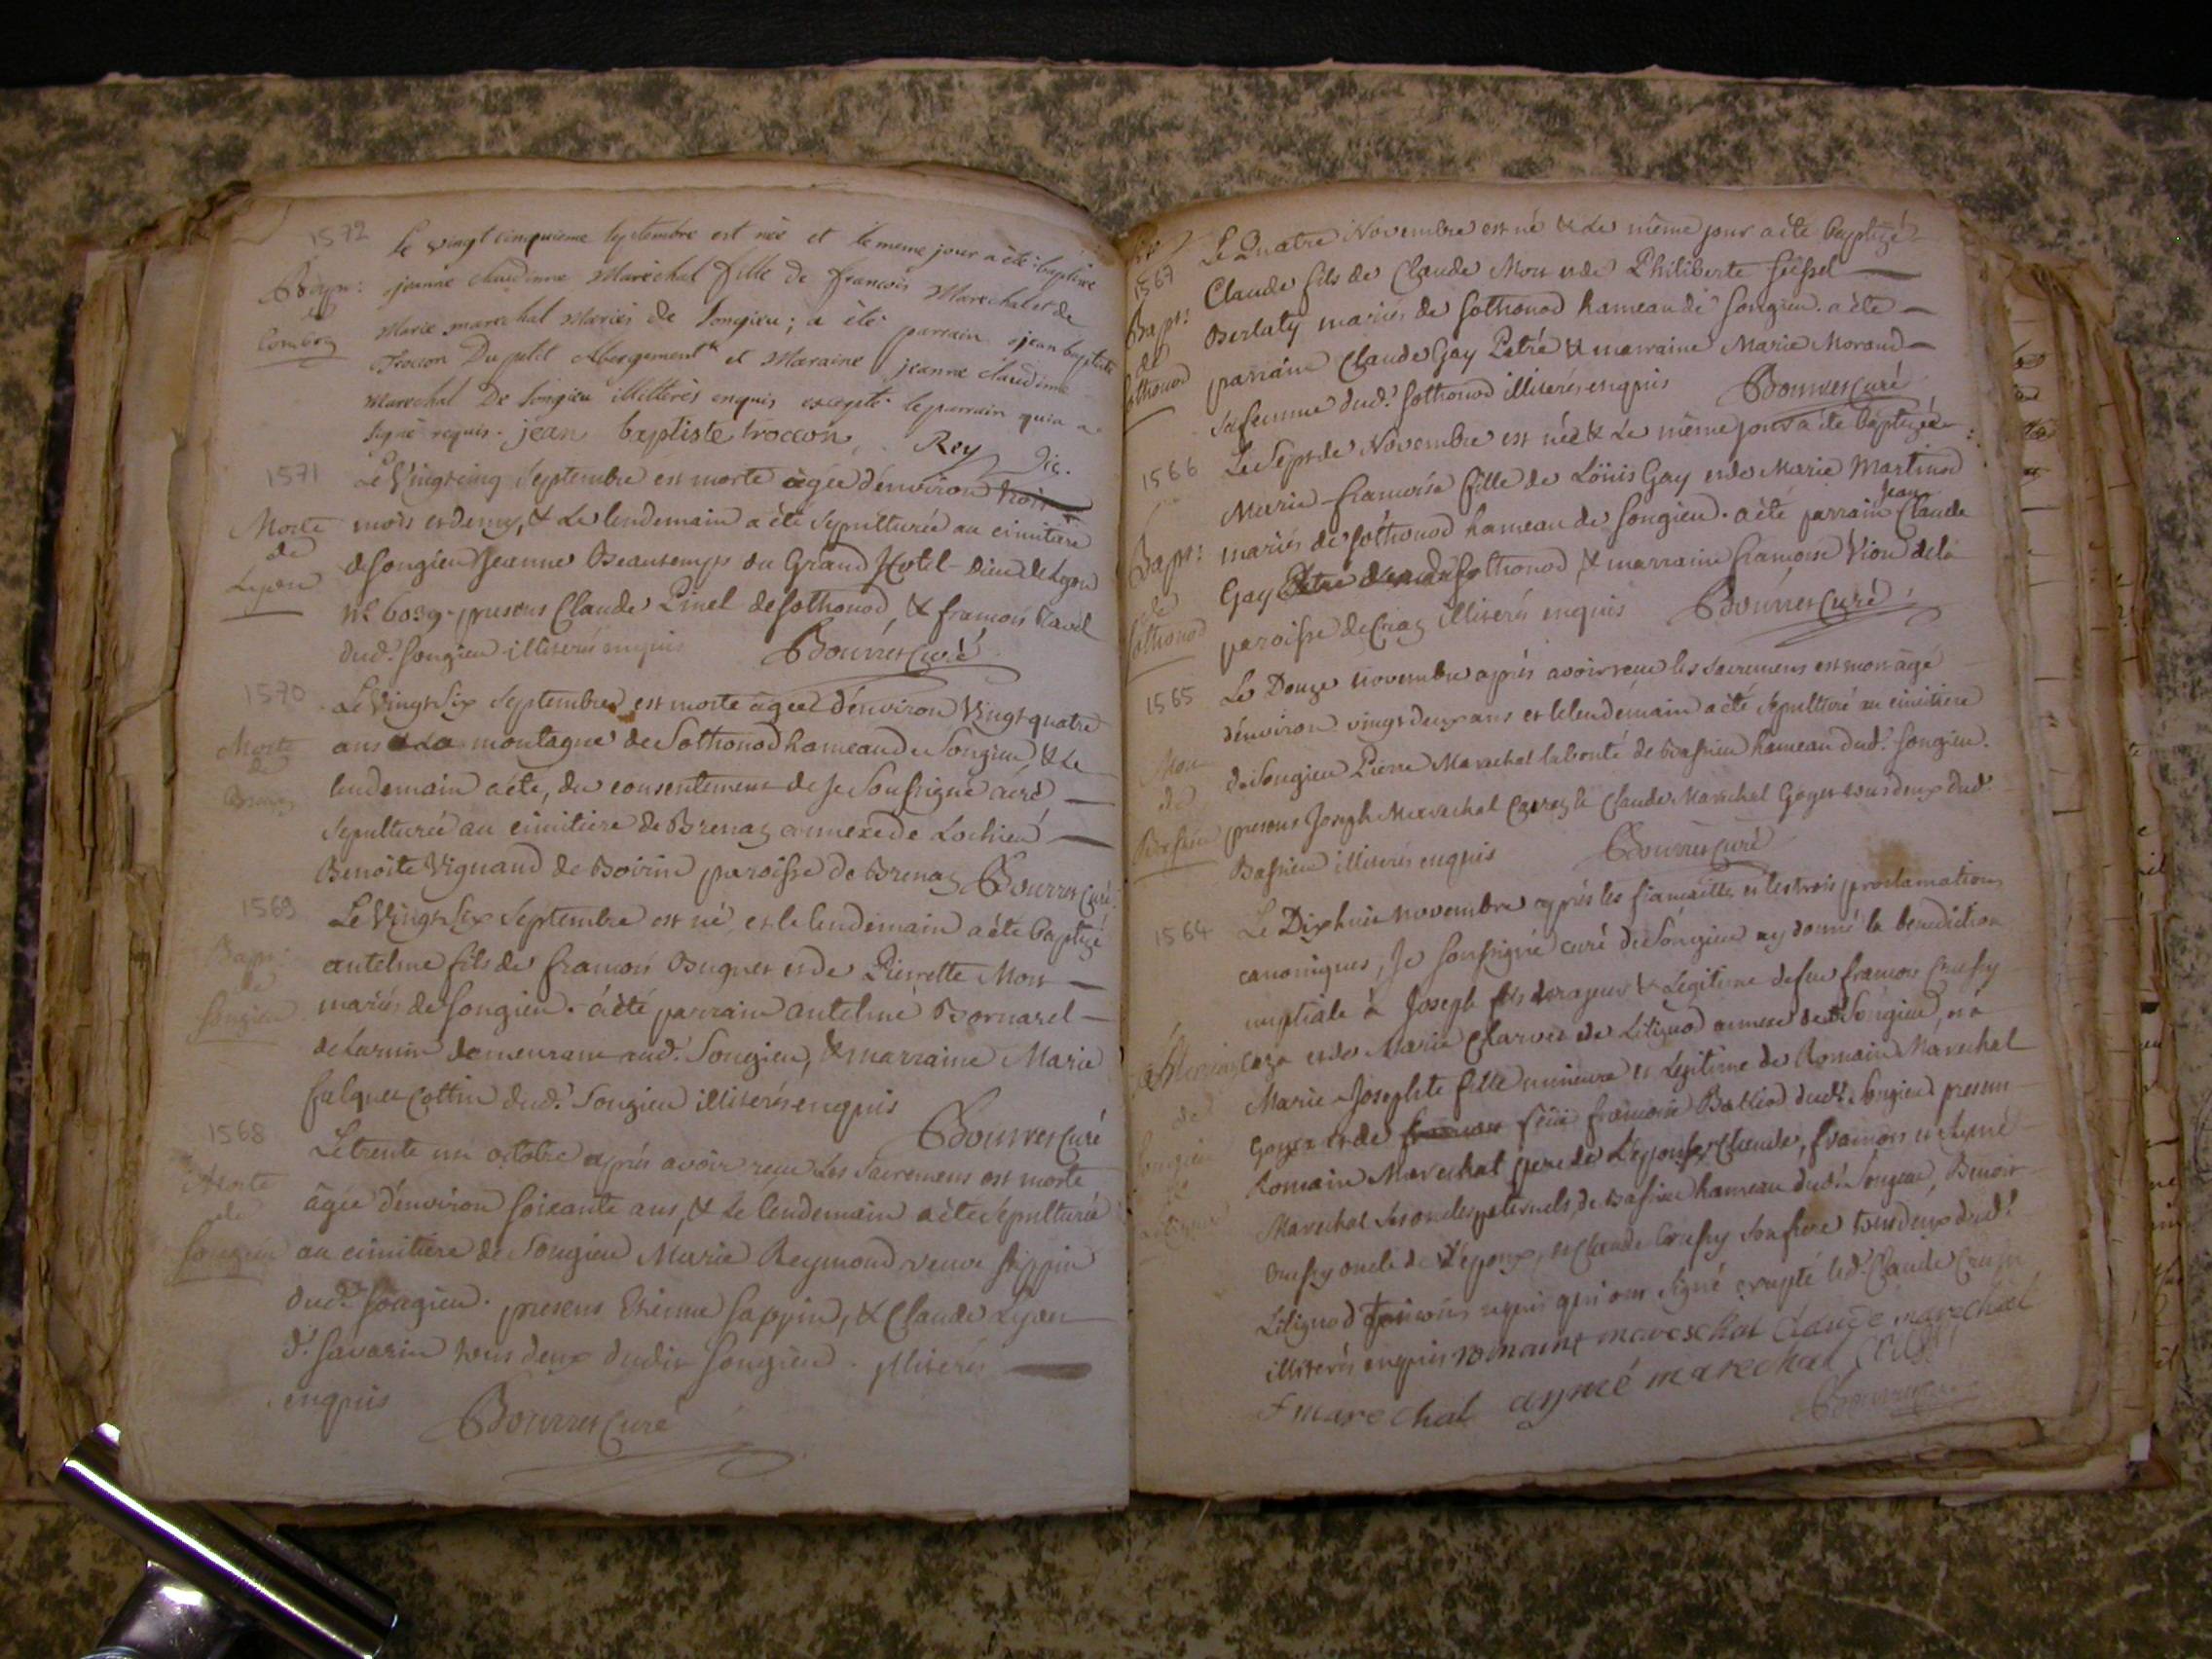 1572
Le vingt cinquieme septembre est née et le meme jour a été baptisée
jeanne claudinne Maréchal fille de francois Marechal et de
Marie marechal Mariés de Songieu ; a été parrain jean baptiste
Trocon Du petit Abergement et Maraine jeanne claudinne
Marechal De Songieu illitterés enquis excepté le parrain qui a
signé requis. jean baptiste trocon Rey Vic.
1571
Morte
de
Lyon
Le Vingt cinq Septembre est morte agée d'environ trois
mois et demy, & Le lendemain a été sepulturée au cimitiere
de Songieu Jeanne Beautemps du Grand Hotel-Dieu de Lyon
n.º 6039. presens Claude Pinel de Sothonod, & francois
dud.t Songieu illiterés enquis Bourret Curé
1570
Morte
de
Brenaz
Le Vingt Six Septembre est morte agée d'environ Vingt quatre
ans montagne de Sothonod hameau de Songieu & Le
lendemain a été, du consentement de Je Soussigné curé
sepulturée au cimitiere de Brenaz annexe de Lochieu
Benoite Vignand de Boirin paroisse de Brenaz Bourret Curé
1569
Bapt:
de
Songieu
Le Vingt Six Septembre est né et le lendemain a été baptizé
antelme fils de francois Buguet et de Pierrette Mon
mariés de Songieu. a été parrain antelme Bornarel
demeurant aud.t Songieu, & marraine Marie
Cottin dud.t Songieu illiterés enquis
Bourret Curé
1568
Morte
de
Songieu
Le trente un octobre après avoir recu Les Sacremens est morte
âgée d'environ soixante ans, & Le lendemain a été sépulturée
au cimitiere de Songieu Marie Reymond veuve Sappin
dud.t Songieu. presens Etienne Sappin, & Claude Lyon
d.t Savarin tous deux dudit Songieu. illiterés
enquis
Bourret Curé
1567
Bapt:
de
Sothonod
Le Quatre Novembre est né & Le même jour a été baptizé
Claude fils de Claude Mon et de Philiberte
Berlaty mariés de Sothonod hameau de Songieu. a été
parrain Claude Gay Patré & marraine Marie Morand
sa femme dud.t Sothonod illiterés enquis Bourret Curé
1566
Bapt:
de
Sothonod
Le Sept de Novembre est née & Le même jour a été baptizée
Marie francoise fille de Loüis Gay et de Marie Martinod
mariés de Sothonod hameau de Songieu. a été parrain Jean Claude
Gay Sothonod, & marraine francoise Vion de la
paroisse de Craz illiterés enquis Bourret Curé
1565
Mort
de
Bassieu
Le Douze novembre après avoir recu les Sacremens est mort âgé
d'environ vingt deux ans et le lendemain a été sepulturé au cimitiere
de Songieu Pierre Marechal labonté de Bassieu hameau dud.t Songieu.
presens Joseph Marechal & Claude Marechal Goyet tous deux dud.t
Bassieu illiterés enquis Bourret Curé
1564
Mariage
de
Songieu
Le Dix huit novembre après les fiancailles et les trois proclamations
canoniques, Je soussigné curé de Songieu ay donné la benediction
nuptiale à Joseph fils majeur & Legitime de feu francois Crussy
et de Marie Charvet de Lilignod annexe de Songieu, et à
Marie Josephte fille mineure et Legitime de Romain Marechal
Goyet et de feüe francoise Balliod dud.t Songieu presens
Romain Marechal pere de L'epouse, Claude, francois et Aymé
Marechal ses oncles paternels, de Bassieu hameau dud.t Songieu, Benoit
Crussy oncle de L'epoux, et Claude Crussy son frere tous deux dud.t
Lilignod temoins requis qui ont signé excepté led.t Claude Crussy
illiterés enquis romaint mareschal claude marechal
f marechal aymé marechal